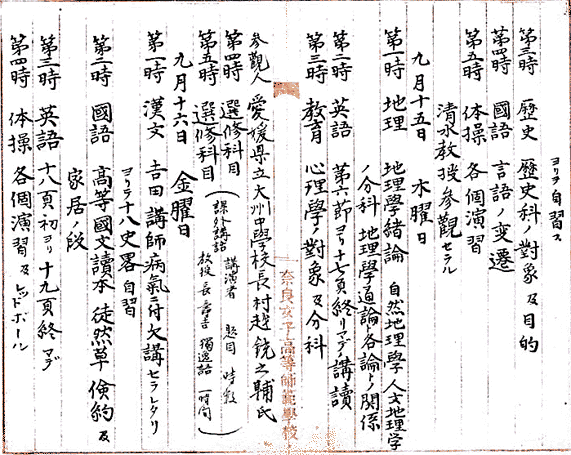 ヨリヲ自習ス
第三時 歴史 歴史科ノ對象及目的
第四時 國語 言語ノ変遷
第五時 体操 各個演習
清水教授参觀セラル
九月十五日 水曜日
第一時 地理 地理學緒論 自然地理學 人文地理学
ノ分科 地理學通論ト各論トノ関係
第二時 英語 第六節ヨリ十七頁終リマデ講讀
第三時 教育 心理學ノ對象及分科
奈良女子高等師範學校
参觀人 愛媛県立大州中學校長村趙銃之輔氏
第四時 選修科目
第五時 選修科目
(課外講話 講演者 題目 時数
教授長壽吉 獨逸語 一時间)
九月十六日 金曜日
第一時 漢文 吉田講師病氣ニ付欠講セラレタリ
ヨリテ十八史畧自習
第二時 國語 高等國文讀本 徒然草 倹約及
家居ノ段
第三時 英語 十八頁初ヨリ十九頁終マデ
第四時 体操 各個演習及ヒッドボール